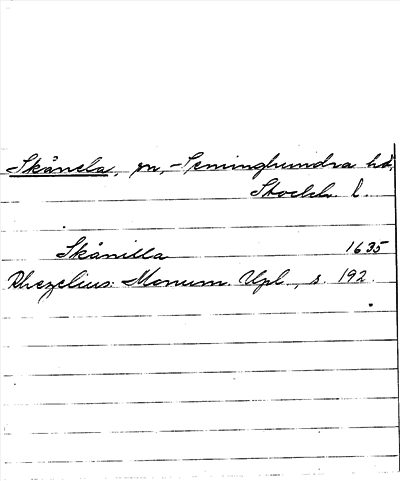 Skånela, sn, Seminghundra hd,
Stockh. l.
Skånilla 1635
Rhezelius: Monum. Upl., s. 192.